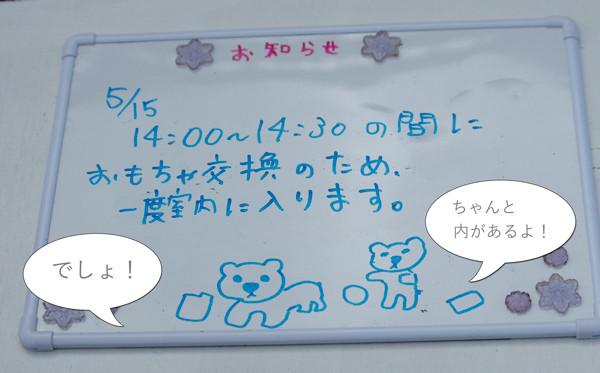 お知らせ
5/15
14:00~14:30の間に
おもちゃ交換のため、
一度室内に入ります。
ちゃんと
内があるよ！
でしょ！